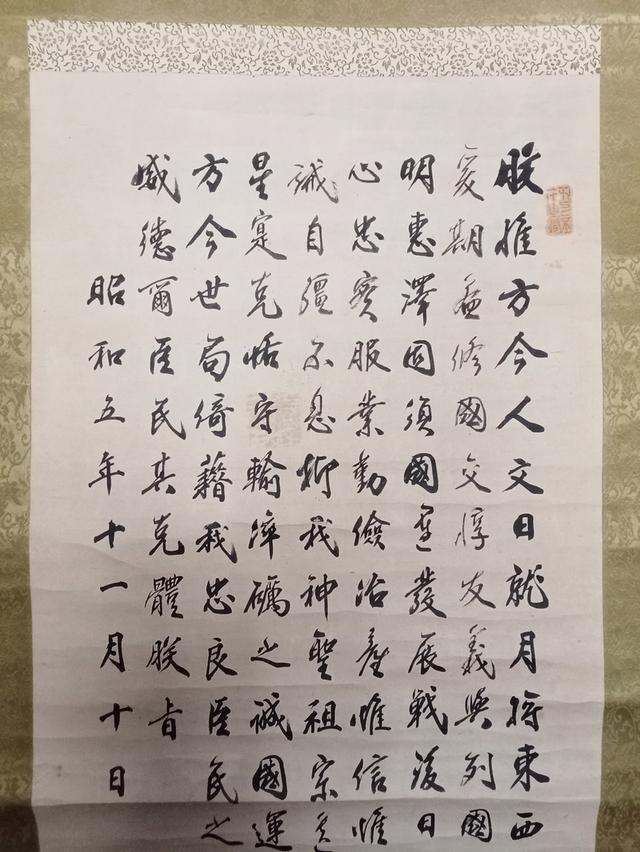 朕惟方今人文日就月將東西
爰期益修國交惇友義與列國
明惠澤固須國運發展戰後日
心忠實服業勤儉治產惟信惟
誡自彊不息抑我神聖祖宗遺
星寔克恪守輸淬礪之誠國運
方今世局倚藉我忠良臣民之
威德爾臣民其克體朕旨
昭和五年十一月十日